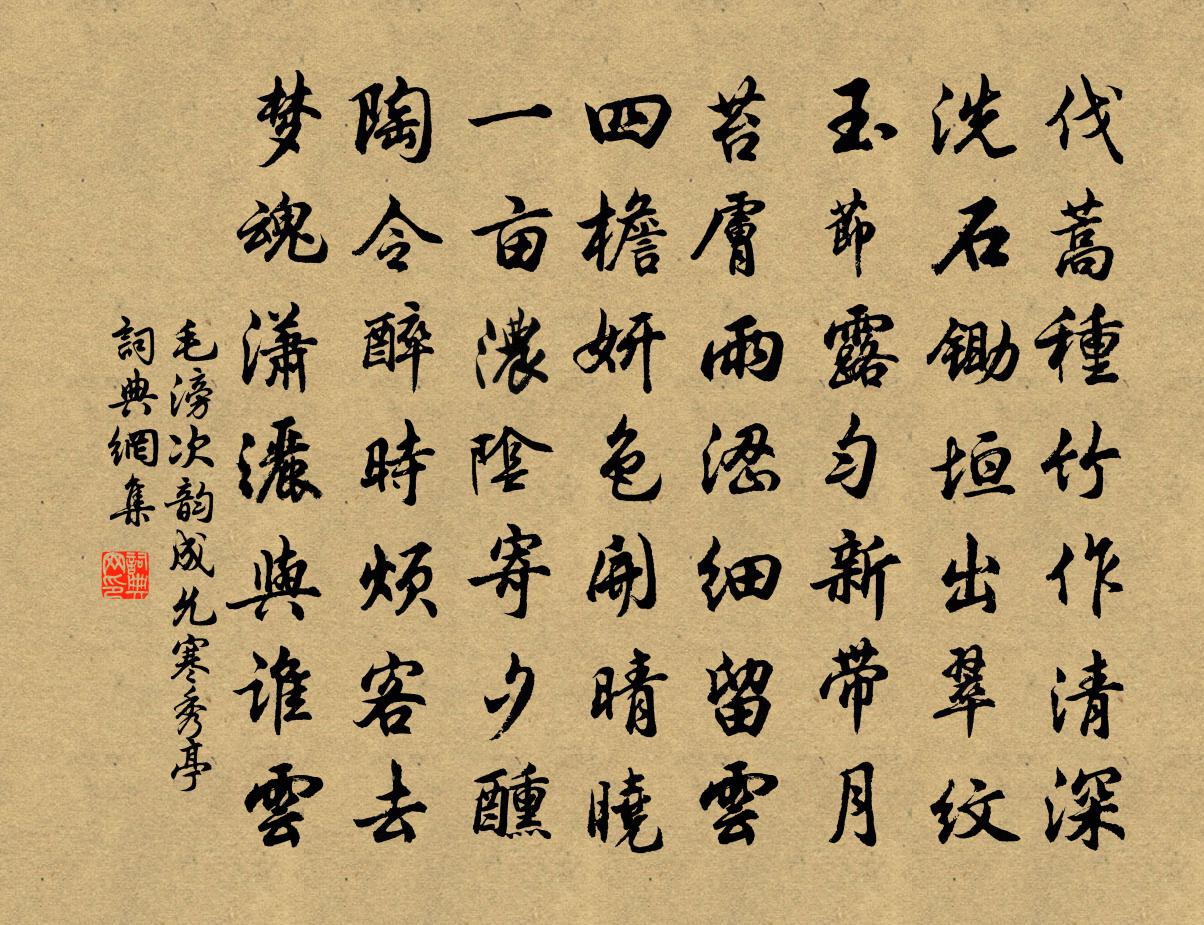 伐蒿種竹作清深
洗石鋤垣出翠紋
玉節露勻新带月
苔膚雨澀細留雲
四檐妍色開晴曉
一亩濃陰寄夕醺
陶令醉時煩客去
梦魂瀟灑與誰雲
毛滂次韵成允寒秀亭
詞典網集
詞典
网印